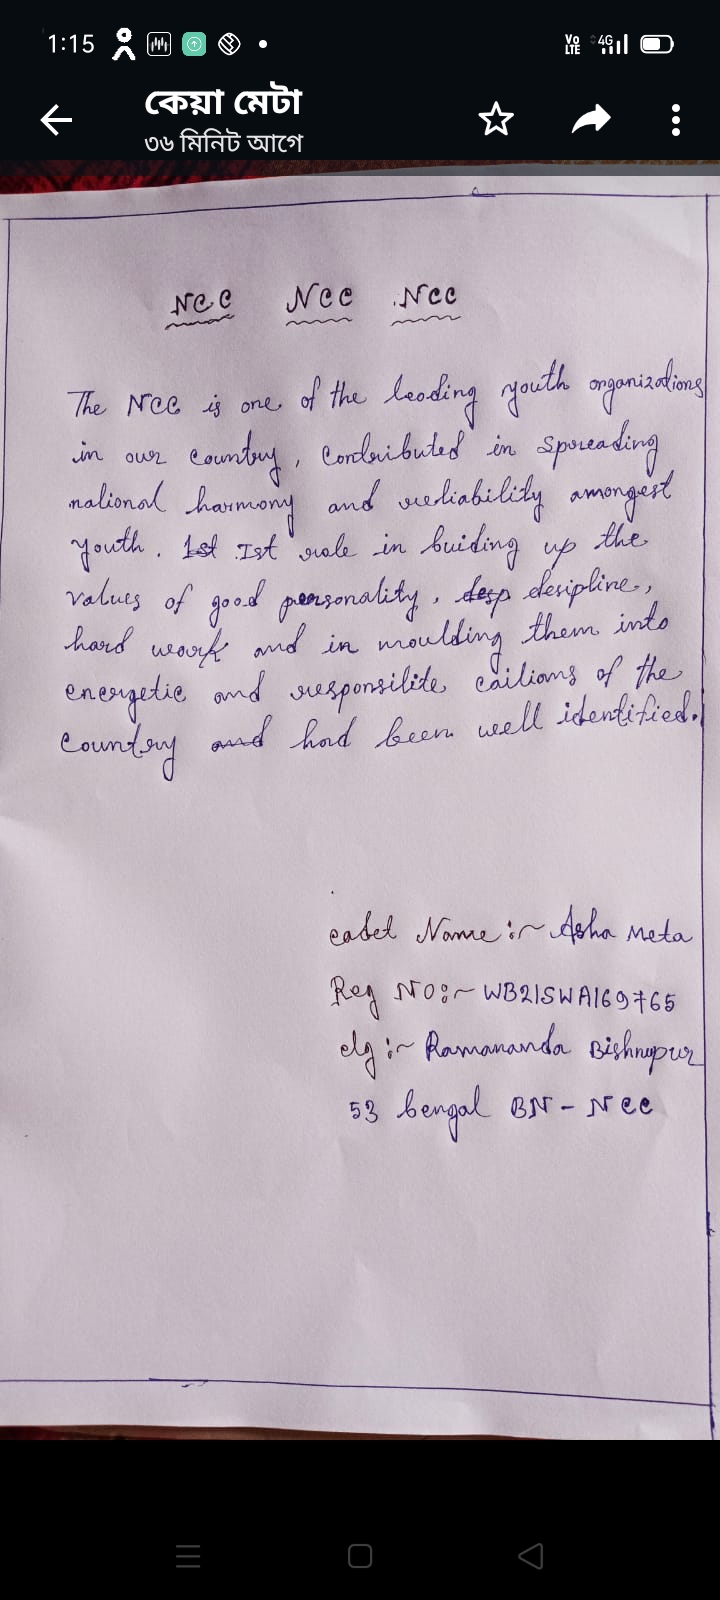 1:15
Vo LTE 4G
কেয়া মেটা
৩৬ মিনিট আগে
NCC NCC NCC
The NCC is one of the leading youth organizations
in our country, contributed in spreading
national harmony and reliability amongest
youth. 1st Ist role in buiding up the
values of good personality, desp desipline,
hard work and in moulding them into
energetic and responsilite cailians of the
country and had been well identified.
cadet Name:~ Asha Meta
Reg NO:~ WB21SWA169765
clg:~ Ramananda Bishnupur
53 bengal BN - NCC